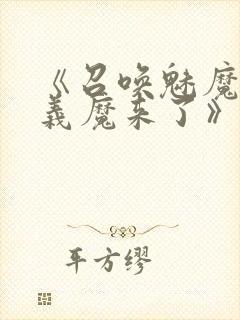 《召唤魅魔
義魔来了》
平方缪